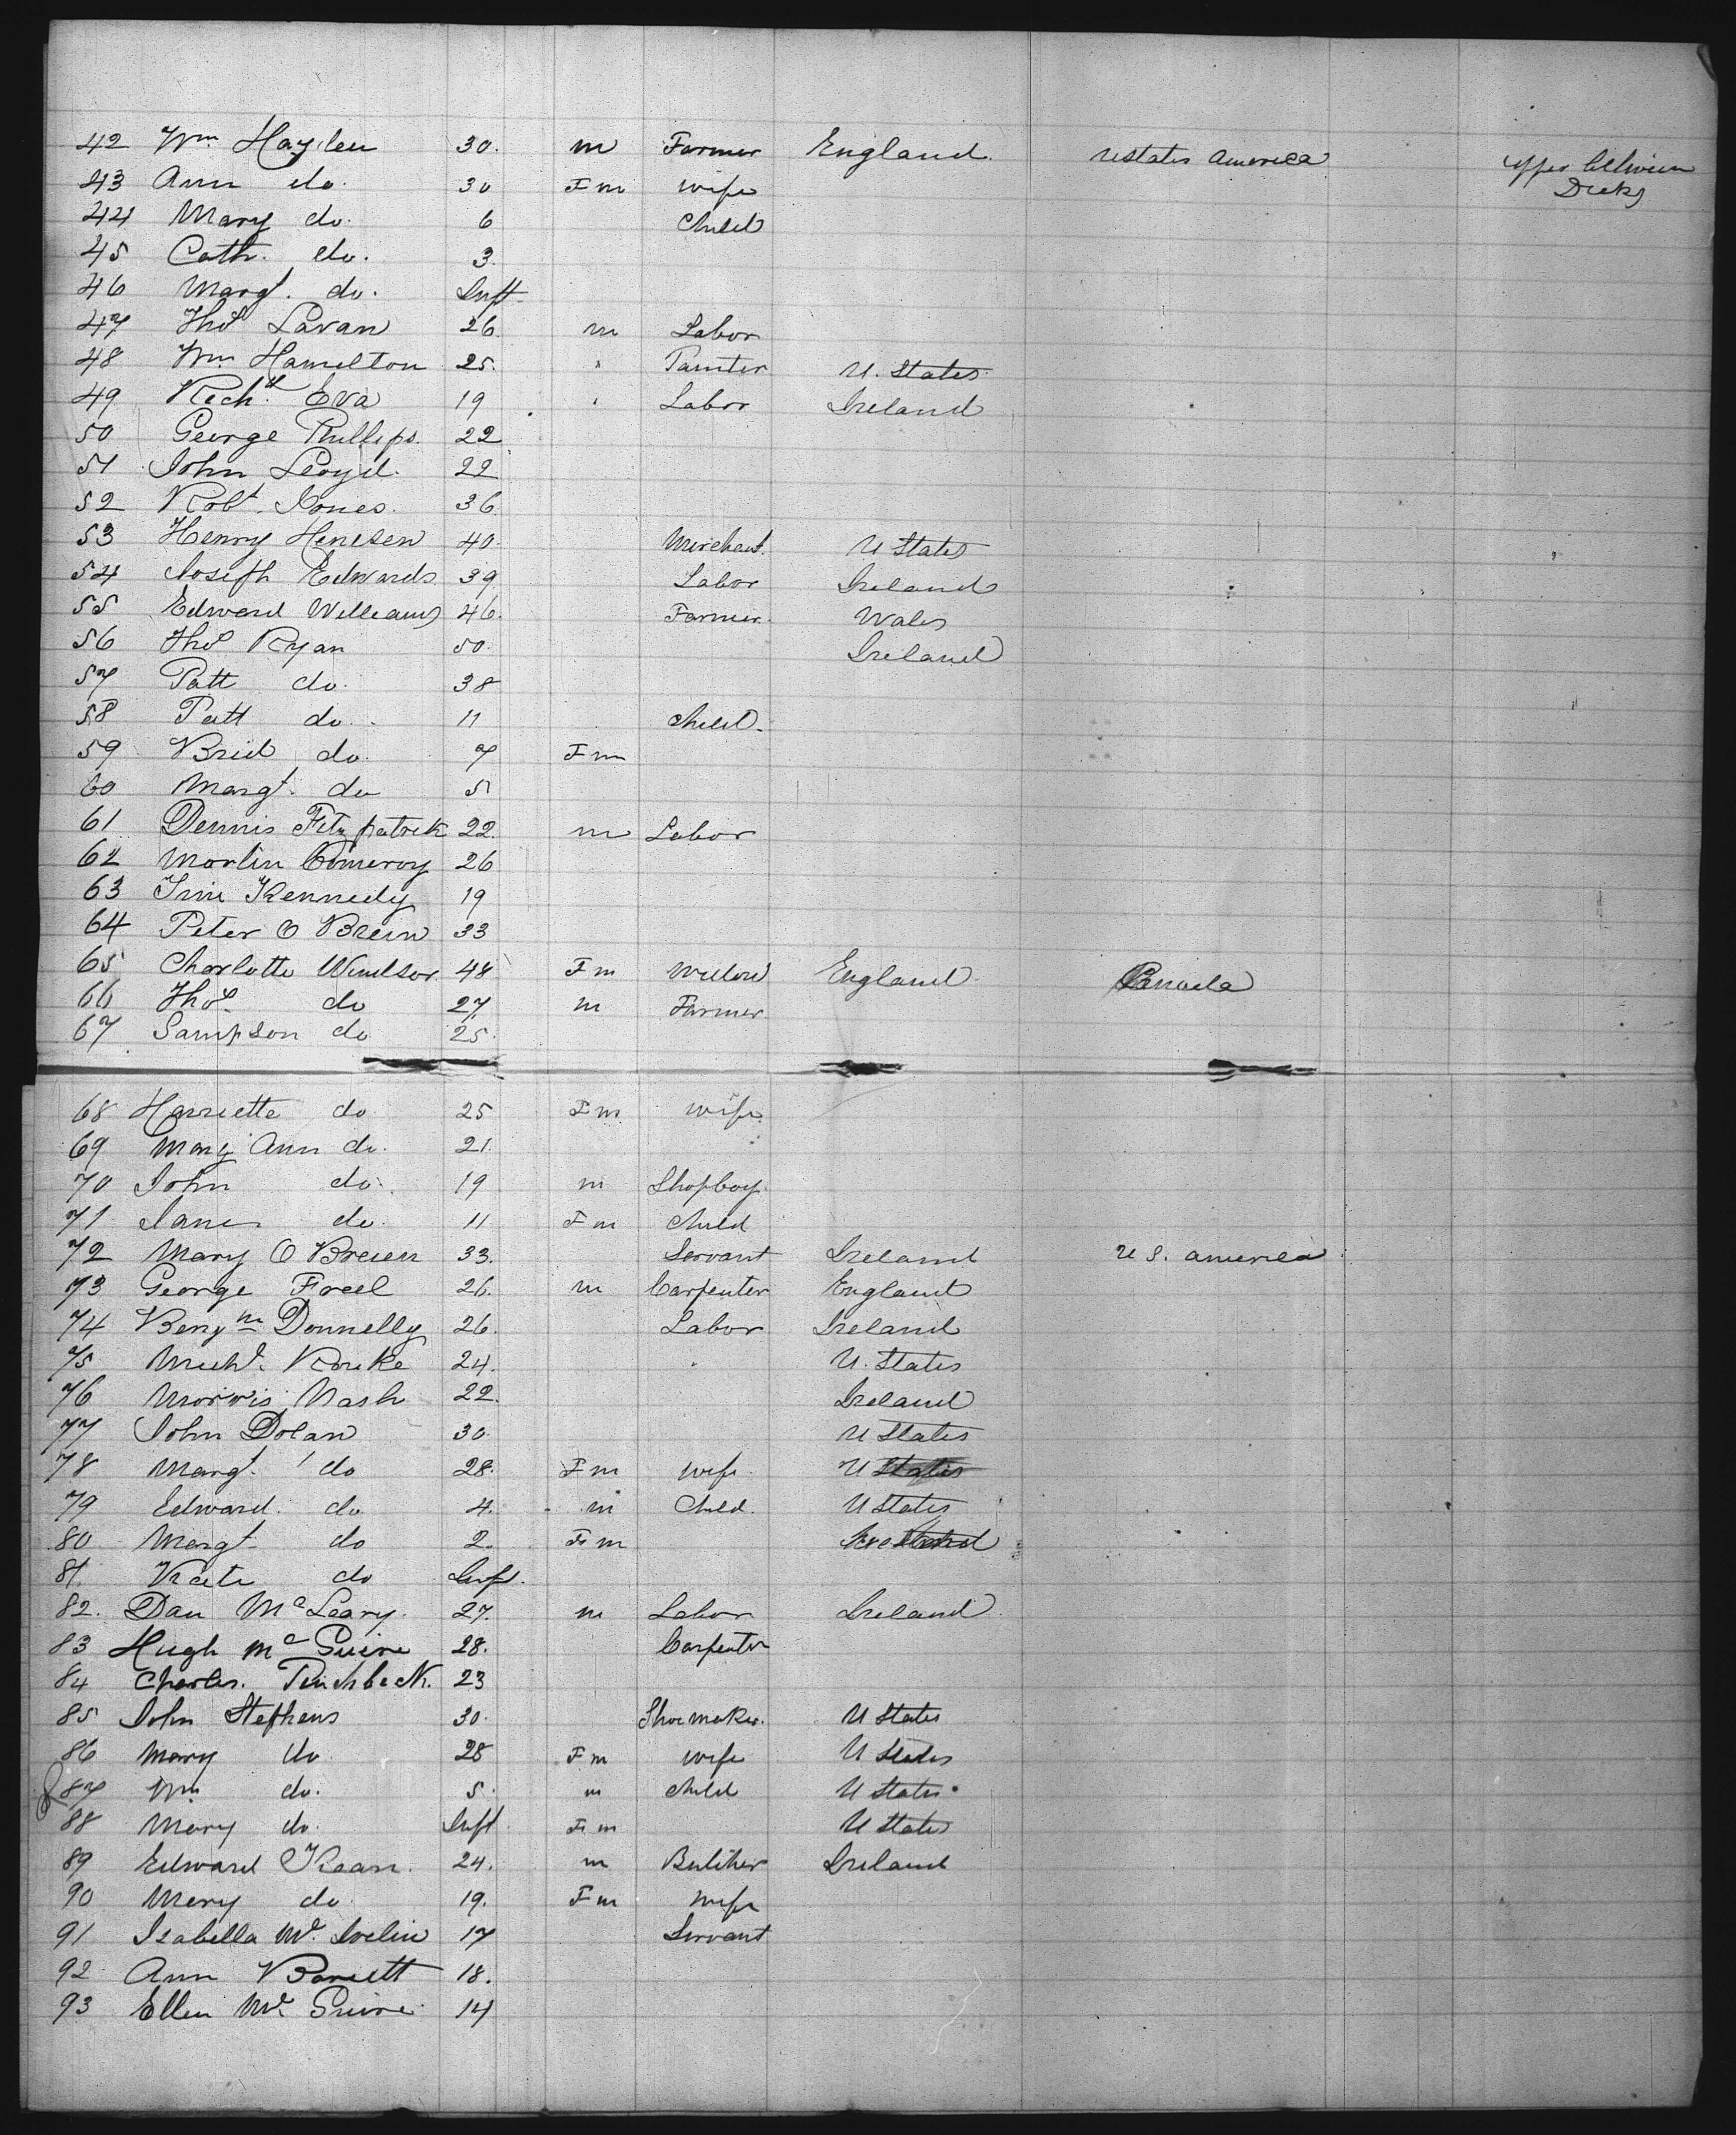 42 Wm Hayden 30. m Farmer England. U States America Upper between Decks
43 Ann do. 30 Fm wife
44 Mary do. 6 Child
45 Cath. do. 3.
46 Margt. do. Inft
47 Thos Lavan 26. m Labor
48 Wm Hamilton 25. " Painter U. States
49 Richd. Eva 19 " Labor Ireland
50 George Phillips. 22
51 John Lloyd. 22
52 Robt. Jones. 36.
53 Henry Henesen 40. Merchant. U States
54 Joseph Edwards 39 Labor Ireland
55 Edward Williams 46. Farmer. Wales
56 Thos Ryan 50. Ireland
57 Patt do. 38
58 Patt do. 11 Child.
59 Brid do. 7 Fm
60 Margt. do 5
61 Dennis Fitzpatrick 22. m Labor
62 Martin Comeroy 26
63 Tim Kennedy 19
64 Peter O Brein 33
65 Charlotte Windsor 48 Fm Widow England Canada
66 Thos. do 27 m Farmer
67 Sampson do 25.
68 Harriette do 25 Fm wife.
69 Mary Ann do. 21.
70 John do. 19 m Shopboy.
71 Jane do. 11 Fm Child
72 Mary O Breien 33. Servant Ireland U S. America
73 George Freel 26. m Carpenter England
74 Benjm Donnelly 26. Labor Ireland
75 Michl. Rourke 24. " U. States
76 Morris Nash 22. Ireland
77 John Dolan 30. U States
78 Margt. do 28. Fm wife. U States
79 Edward do 4. m Child. U States
80 Margt do 2. Fm
81. Kate do Inft.
82. Dan Mc Leary. 27. m Labor Ireland
83 Hugh Mc Guire 28. Carpenter
84 Charles. Pinchbeck. 23
85 John Stephens 30. Shoemaker. U States
86 Mary do 28 Fm wife U States
87 Wm do. 5. m Child U States
88 Mary do. Inft Fm U States
89 Edward Kean. 24. m Butcher Ireland
90 Mary do. 19. Fm wife
91 Isabella Mc. 17 Servant
92 Ann Barrett 18.
93 Ellen Mc Guire 14